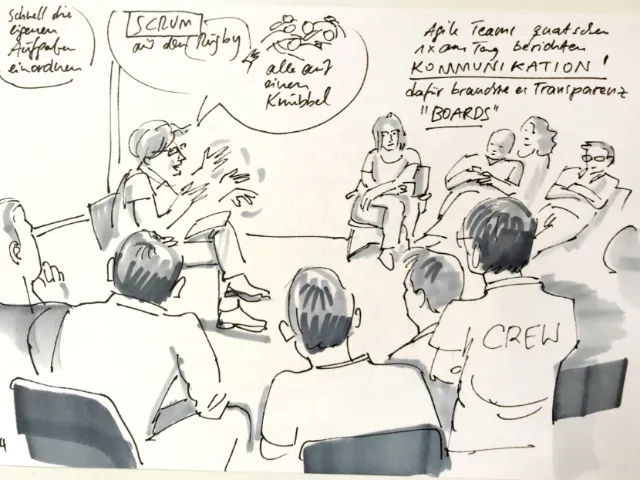 Schnell die
eigenen
Aufgaben
einordnen
SCRUM
aus dem Rugby
alle auf
einem
Knubbel
Agile Teams quatschen
1x am Tag berichten
KOMMUNIKATION!
dafür brauchte es Transparenz
"BOARDS"
CREW
4